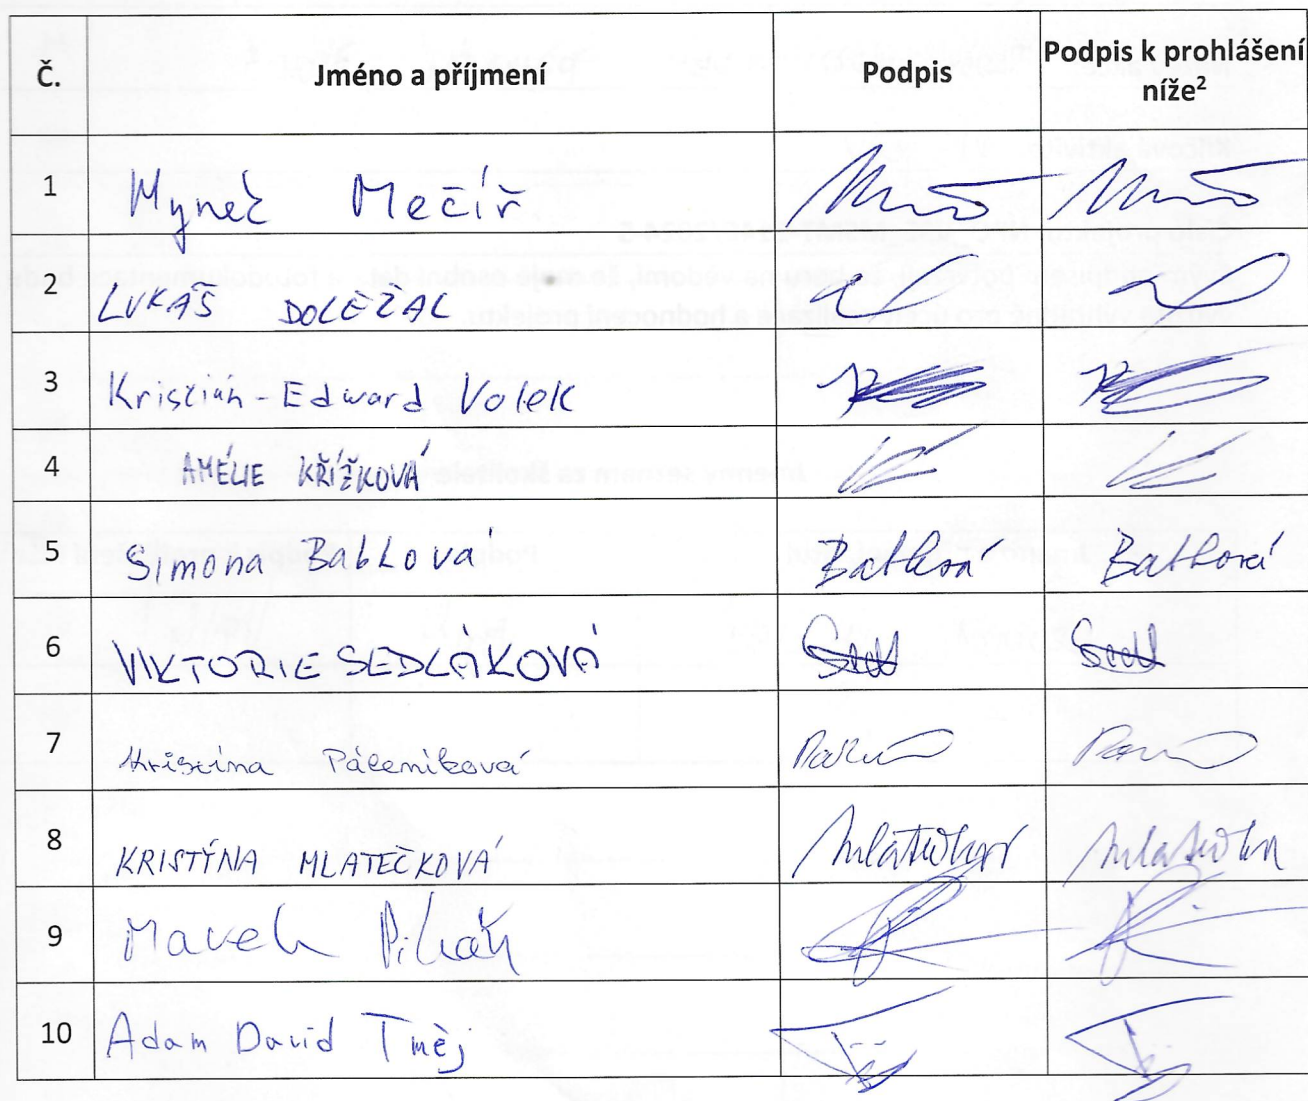 Č. Jméno a příjmení Podpis Podpis k prohlášení níže²
1 Hynek Mečíř
2 LUKÁŠ DOLEŽAL
3 Kristián-Edward Volek
4 AMÉLIE KŘÍŽKOVÁ
5 Simona Baťková Baťková Baťková
6 VIKTORIE SEDLÁKOVÁ Sedl Sedl
7 Kristina Páleníková
8 KRISTÝNA MLATEČKOVÁ
9 Marek
10 Adam David